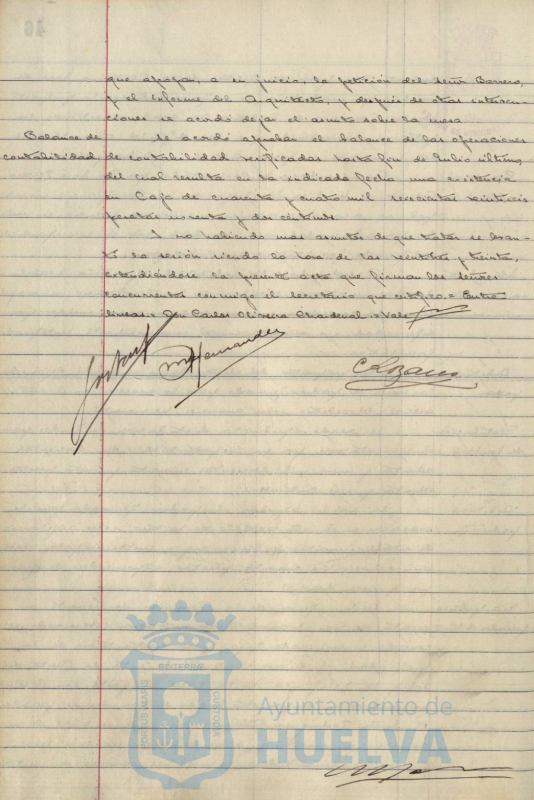 que apoyan, a su juicio, la petición del señor Barrero,
y el informe del Arquitecto, y después de otras interven-
ciones se acordó dejar el asunto sobre la mesa
Balance de
contabilidad
Se acordó aprobar el balance de las operaciones
de contabilidad verificadas hasta fin de Julio último,
del cual resulta en la indicada fecha una existencia
en Caja de cuarenta y cuatro mil seiscientas veintiseis
pesetas noventa y dos céntimos
Y no habiendo mas asuntos de que tratar se levan-
tó la sesión siendo la hora de las veintitres y treinta,
extendiéndose la presente acta que firman los señores
concurrentes conmigo el secretario que certifico.= Entre
lineas.= Don Carlos Oliveira Chardenal =Vale
Hernandez
C Lozano
PORTUS MARIS
ET TERRÆ
CUSTODIA
Ayuntamiento de
HUELVA